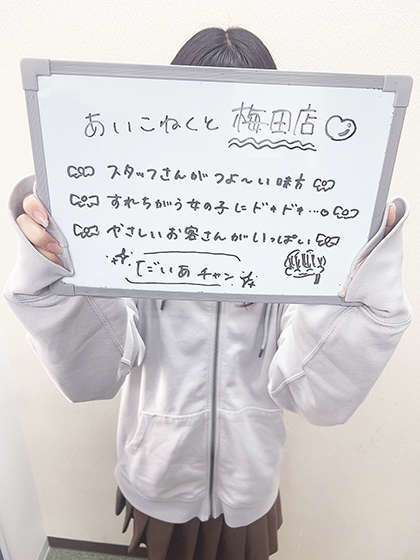 あいこねくと 梅田店
スタッフさんがつよ〜い味方
すれちがう女の子にドキドキ…
やさしいお客さんがいっぱい
ごいあチャン